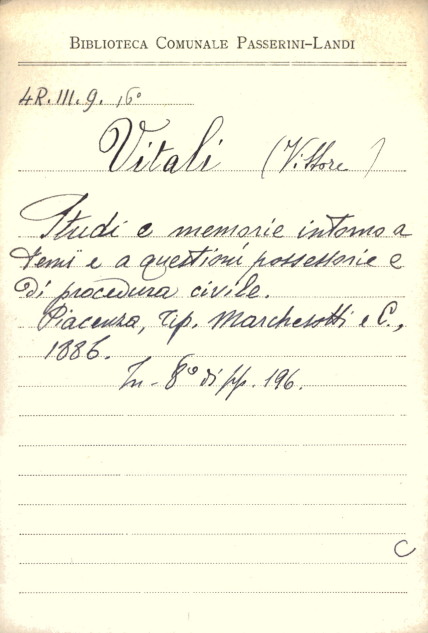 BIBLIOTECA COMUNALE PASSERINI-LANDI
4R.III.9. 16°
Vitali (Vittore)
Studi e memorie intorno a
temi e a questioni possessorie e
di procedura civile.
Piacenza, Tip. Marchesotti e C.,
1886.
In-8° di pp. 196.
C